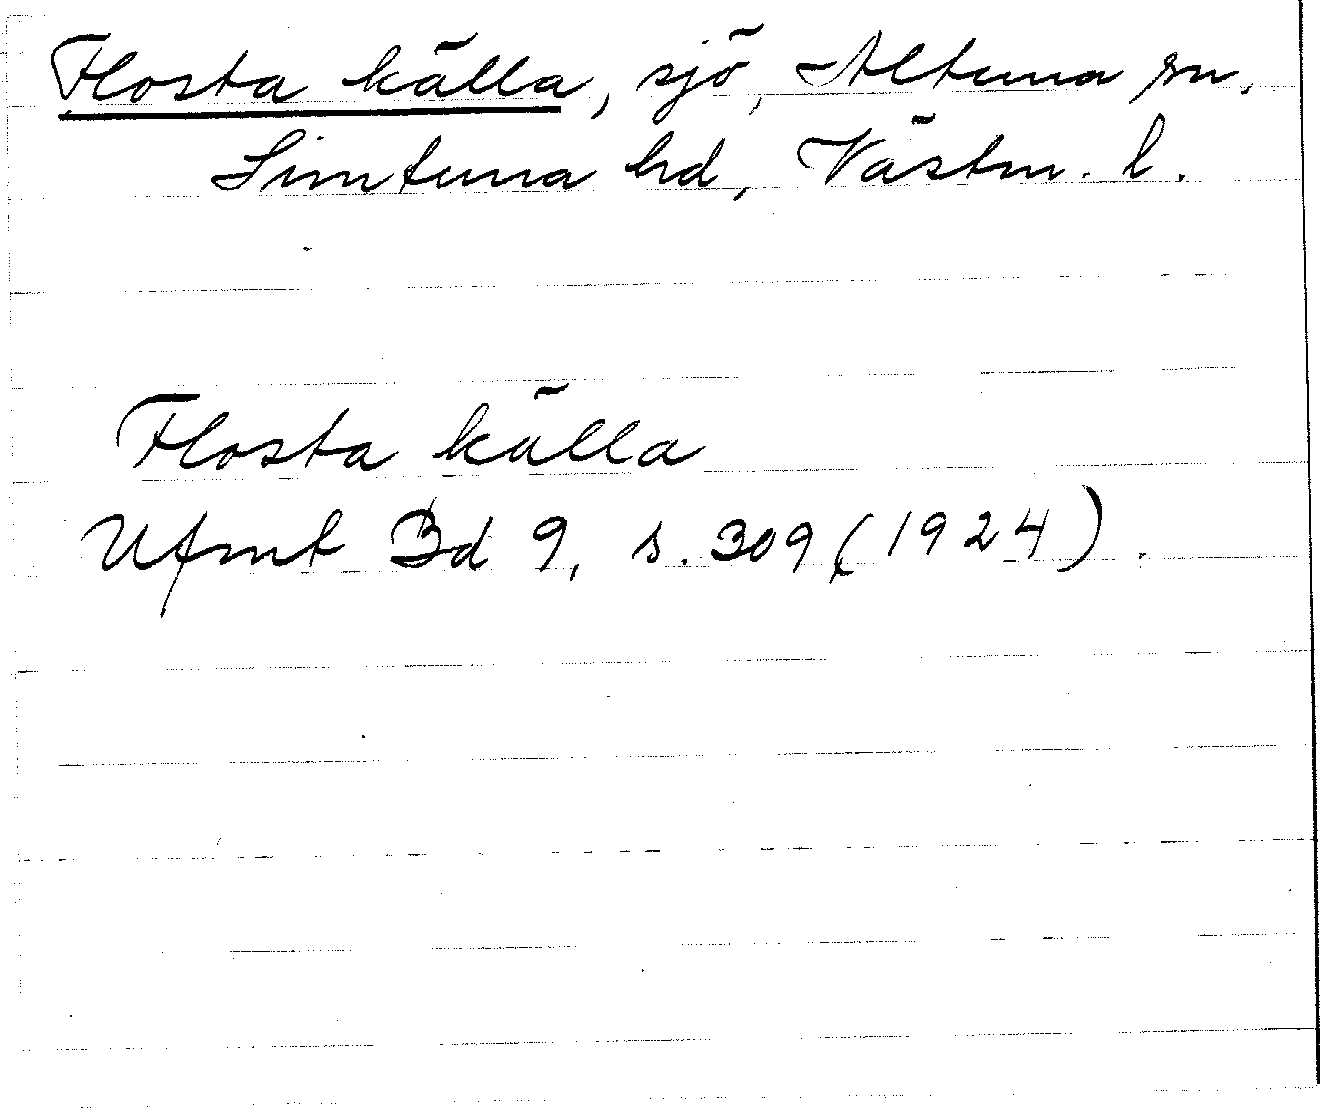 Flosta källa, sjö, Altuna sn,
Simtuna hd, Västm. l.
Flosta källa
Ufmt Bd 9, s. 309 (1924).